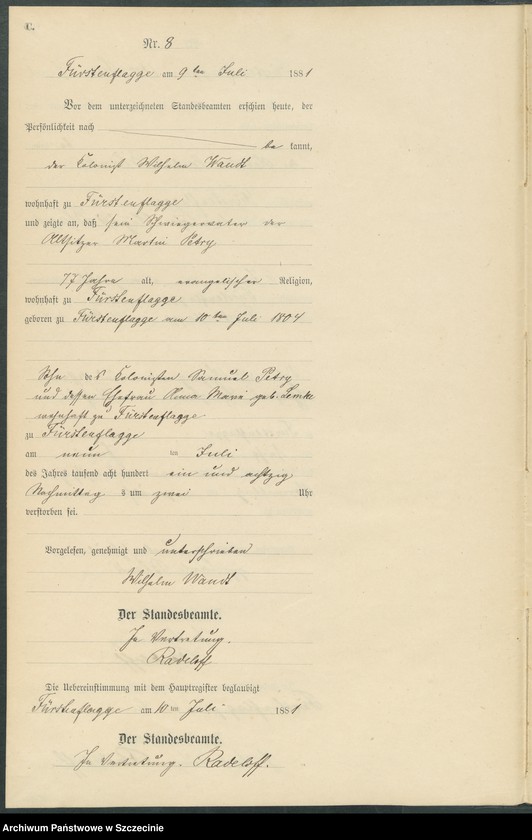 C.
Nr. 8
Fürstenflagge am 9 ten Juli 1881
Vor dem unterzeichneten Standesbeamten erschien heute, der
Persönlichkeit nach
be kannt,
der Colonist Wilhelm Wandt
wohnhaft zu Fürstenflagge
und zeigte an, daß sein Schwiegervater der
Altsitzer Martin Petry
77 Jahre alt, evangelischer Religion,
wohnhaft zu Fürstenflagge
geboren zu Fürstenflagge am 10 ten Juli 1804
Sohn des Colonisten Samuel Petry
und dessen Ehefrau Anna Marie geb. Lemke
wohnhaft zu Fürstenflagge
zu Fürstenflagge
am neun ten Juli
des Jahres tausend acht hundert ein und achtzig
Nachmittag s um zwei Uhr
verstorben sei.
Vorgelesen, genehmigt und unterschrieben
Wilhelm Wandt
Der Standesbeamte.
In Vertretung.
Radeloff
Die Uebereinstimmung mit dem Hauptregister beglaubigt
Fürstenflagge am 10 ten Juli 1881
Der Standesbeamte.
In Vertretung. Radeloff.
Archiwum Państwowe w Szczecinie